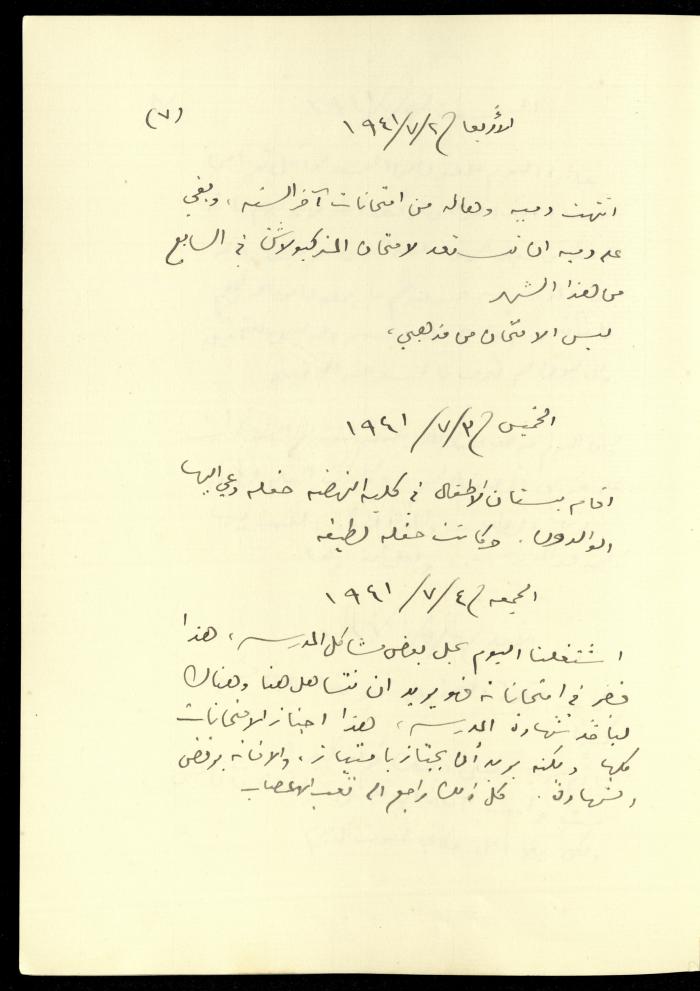 (٧)
الأربعاء ٢/ ٧/ ١٩٤١
انتهت دميه وهاله من امتحانات آخر السنه، وبقي
على دميه ان تستعد لامتحان المتركيولاشن في السابع
من هذا الشهر
ليس الامتحان من مذهبي،
الخميس ٣/ ٧/ ١٩٤١
اقام بستان الاطفال في كلية النهضه حفله دعي اليها
الوالدون. وكانت حفله لطيفه
الجمعه ٤/ ٧/ ١٩٤١
اشتغلنا اليوم بحل بعض مشاكل المدرسه، هذا
قصر في امتحاناته فهو يريد ان نتساهل هنا وهناك
ليأخذ شهادة المدرسه، هذا اجتاز الامتحانات
كلها ولكنه يريد أن يجتاز بامتياز، والا فانه يرفض
الشهادة. كل هذا راجع الى تعب الاعصاب